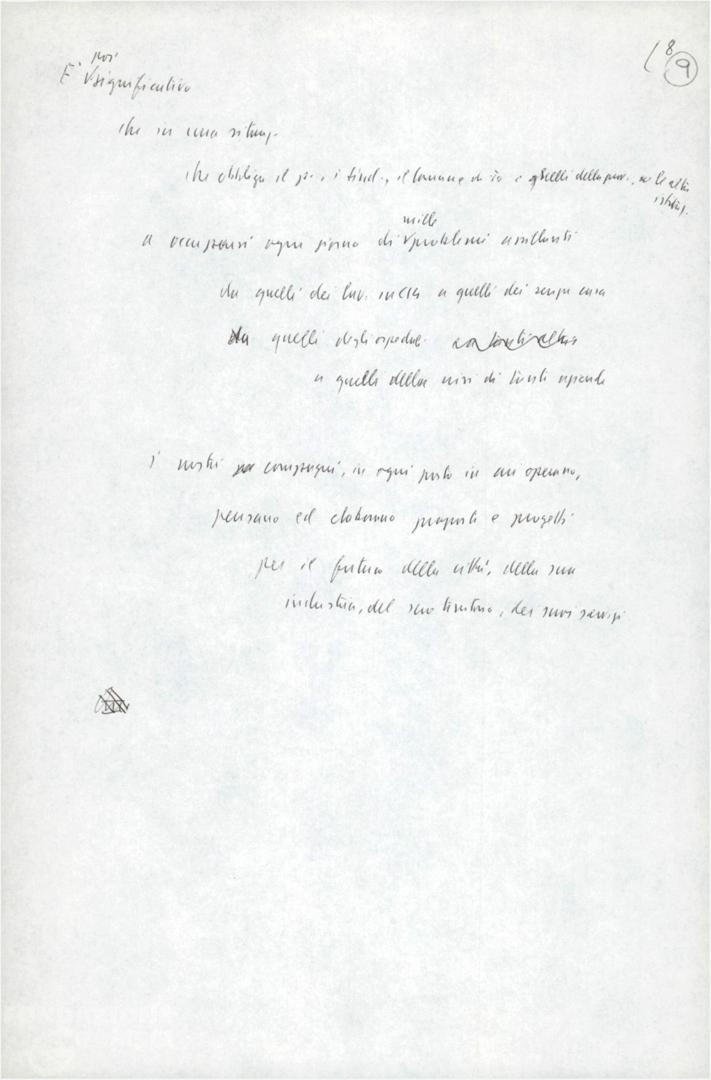 8 9
E' poi significativo
che in una situaz.
che obbliga il p., i sind., il comune di To e quelli della prov., o le altre istituz.
a occuparsi ogni giorno di mille problemi assillanti
da quelli dei lav. in CIG a quelli dei senza casa
da quelli degli ospedali
a quelli della crisi di tante aziende
i nostri compagni, in ogni posto in cui operano,
pensano ed elaborano proposte e progetti
per il futuro della città, della sua
industria, del suo territorio, dei suoi servizi